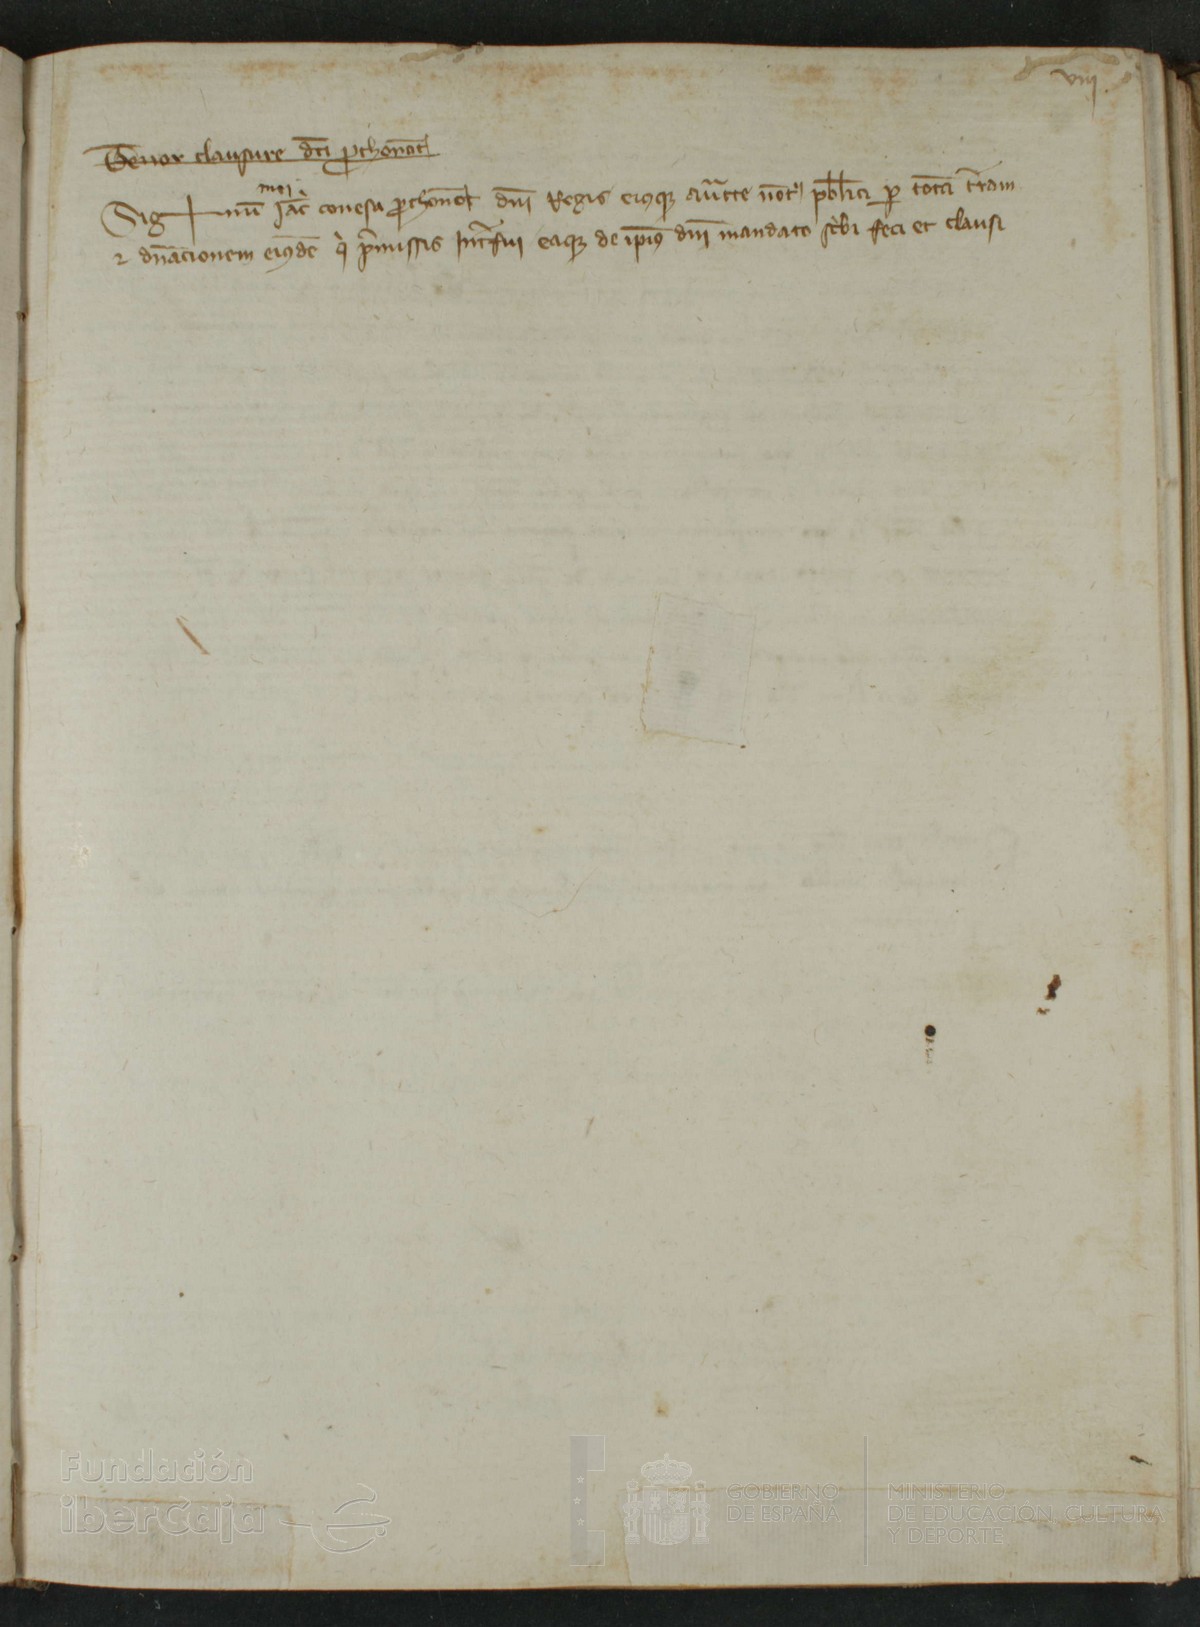 viij
Tenor clausure dc̄i p̱thonot̄
mei
Sig✝nũ Jac̄ conesa p̱thonot̄ dn̄i Regis eiusq̨ auc̄tte not̄ pub̄lici p̱ totā t̄ram
⁊ dn̄acionem eiusdē q̇ p̄missis Int̄fui eaq̨ de ip̄ius dn̄i mandato sc̄bi feci et clausi
Fundación
iberCaja
GOBIERNO
DE ESPAÑA
MINISTERIO
DE EDUCACIÓN, CULTURA
Y DEPORTE